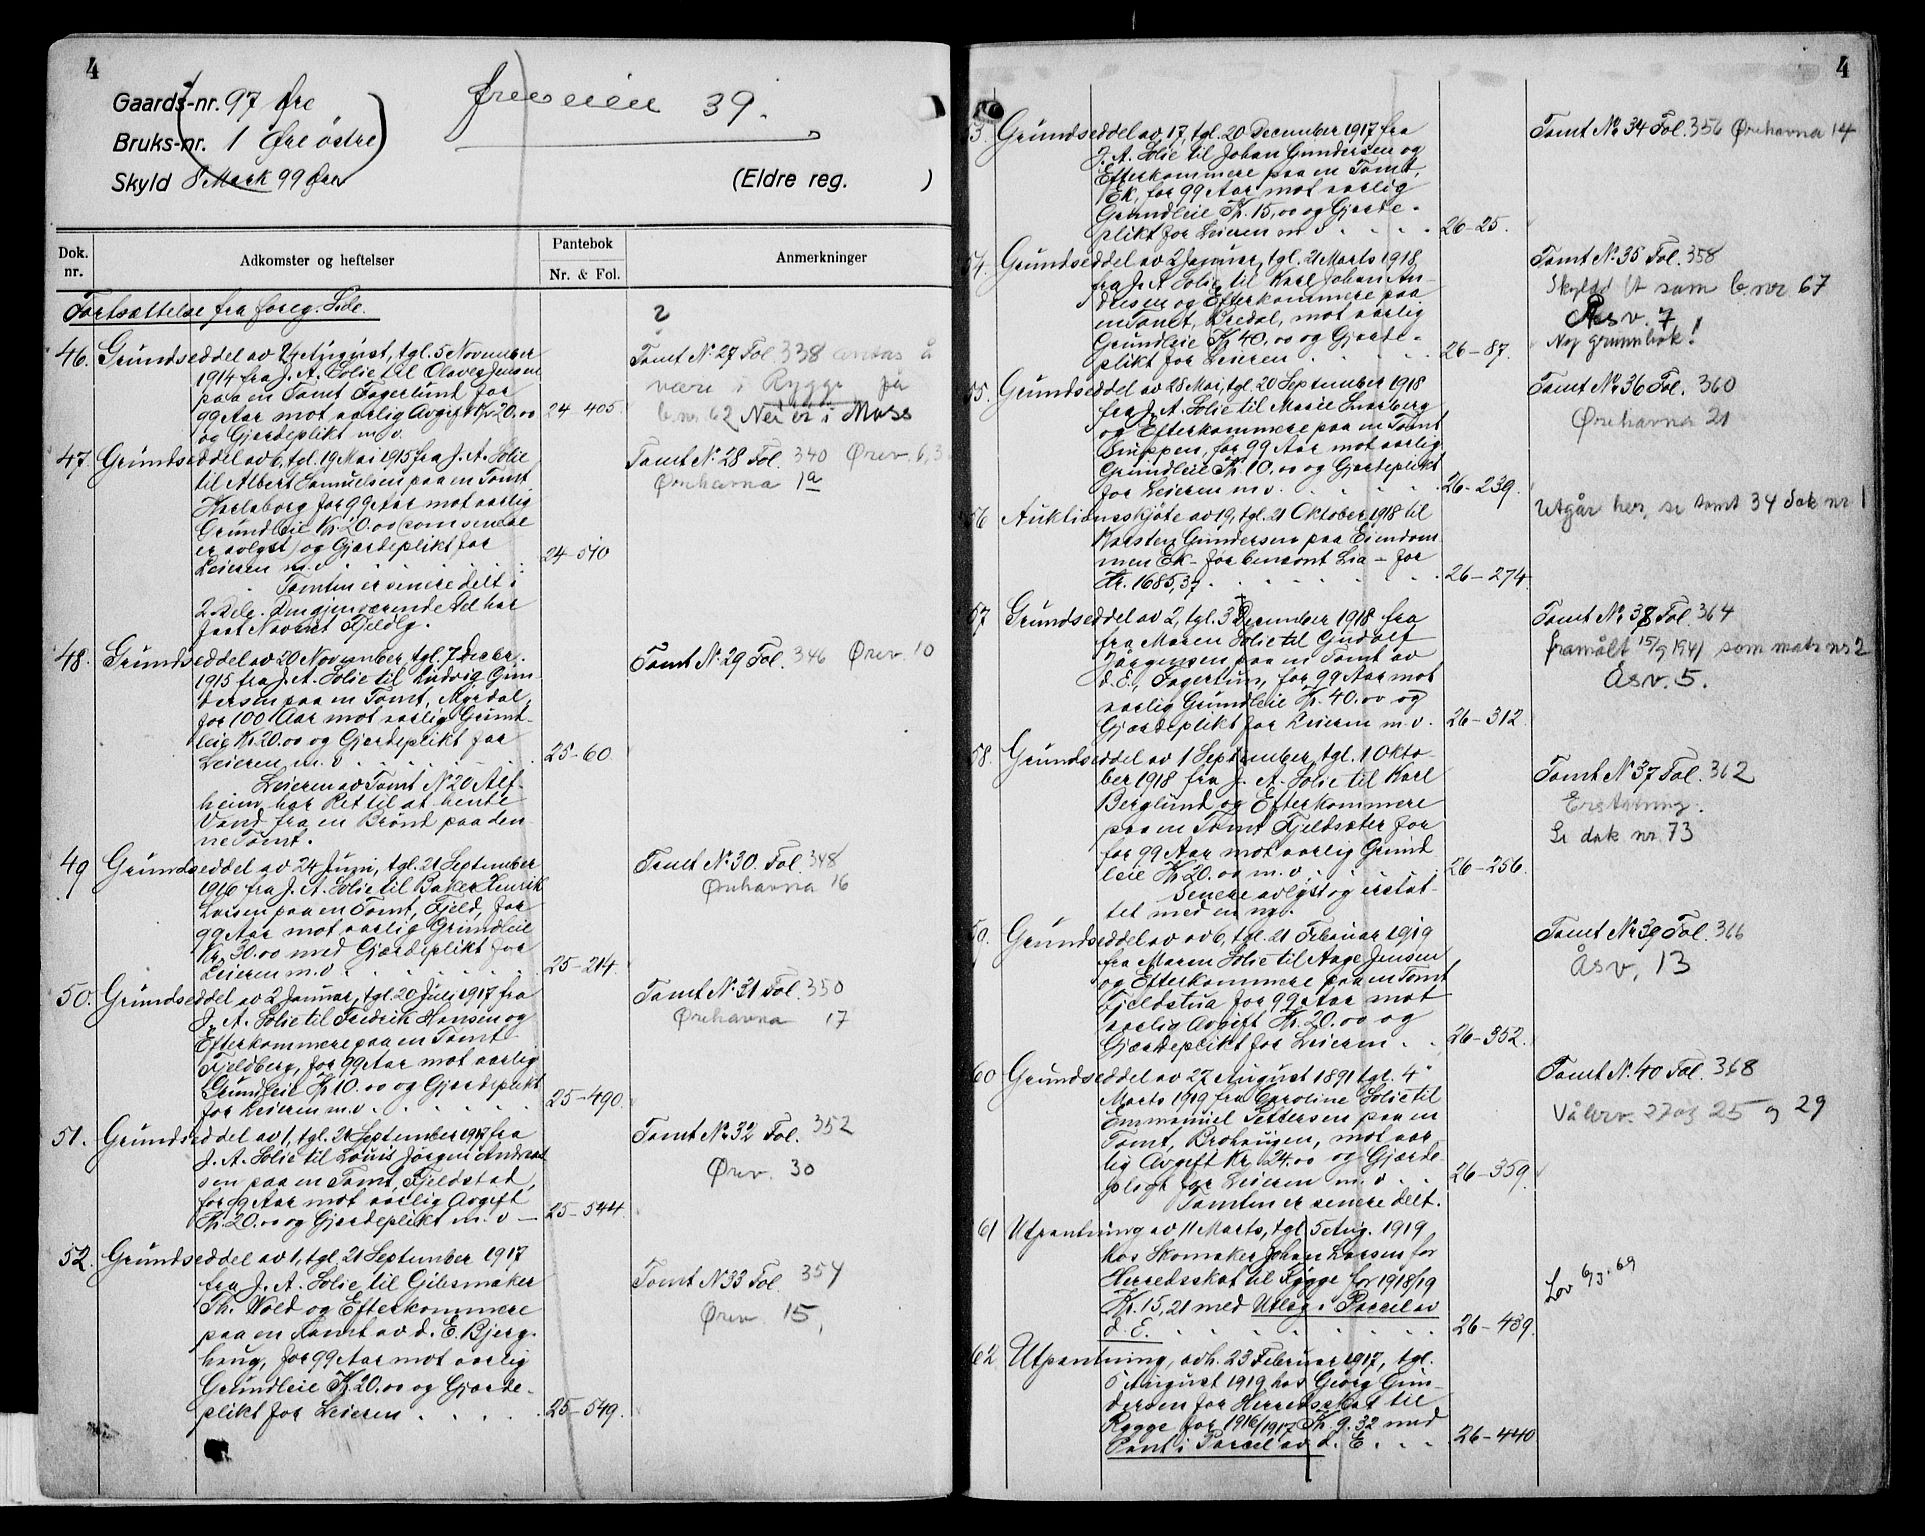 4
Gaards-nr. 97 Øre
Bruks-nr. 1 Øre östre
Skyld 8 Mark 99 Øre
Øreveien 39.
(Eldre reg. )
Dok. nr.
Adkomster og heftelser
Pantebok
Nr. & Fol.
Anmerkninger
Fortsættelse fra foreg. Side.
46. Grundseddel av 24 August, tgl. 5 November
1914 fra J. A. Solie til Olaves Jensen
paa en Tomt Fagerlund for
99 Aar mot aarlig Avgift Kr 20.00
og Gjerdeplikt m. v.
24-405.
?
Tomt No 27 Fol. 338 antas å
være i Rygge på
b. nr 62 Nei er i Moss
47. Grundseddel av 6, tgl. 19 Mai 1915 fra J. A. Solie
til Albert Samuelsen paa en Tomt
Karlsborg for 99 Aar mot aarlig
Grundleie Kr. 20.00 (som senere
er avlyst) og Gjerdeplikt for
Leieren m. v.
24-510
Tomten er senere delt i
2 Dele. Den gjenværende Del har
faat Navnet Fjeldly.
Tomt No 28 Fol. 340 Örev. 6,3
Ørehavna 1a
48. Grundseddel av 20 November, tgl. 7 Decbr.
1915 fra J. A. Solie til Ludvig Gun-
dersen paa en Tomt, Myrdal,
for 100 Aar mot aarlig Grund-
leie Kr. 20.00 og Gjerdeplikt for
Leieren m. v.
25-60
Leieren av Tomt No 20 Alf-
heim har Ret til at hente
Vand fra en Brönd paa den
ne Tomt.
Tomt No 29 Fol. 346 Ørev. 10
49 Grundseddel av 24 Juni, tgl. 21 September
1916 fra J. A. Solie til Baker Henrik
Larsen paa en Tomt, Fjeld, for
99 Aar mot aarlig Grundleie
Kr. 30.00 med Gjerdeplikt for
Leieren m. v.
25-214.
Tomt No 30. Fol. 348
Ørehavna 16
50. Grundseddel av 2 Januar, tgl. 20 Juli 1917 fra
J. A. Solie til Fredrik Hansen og
Efterkommere paa en Tomt
Fjeldberg, for 99 Aar mot aarlig
Grundleie Kr 10.00 og Gjerdeplikt
for Leieren m. v.
25-490.
Tomt No 31 Fol. 350
Ørehavna 17
51. Grundseddel av 1, tgl. 21 September 1917 fra
J. A. Solie til Louis Jörgen Andreas
sen paa en Tomt, Fjeldstad,
for 99 Aar mot aarlig Avgift
Kr. 20.00 og Gjerdeplikt m. v —
25-544.
Tomt No 32 Fol. 352
Ørev. 30
52. Grundseddel av 1, tgl 21 September 1917
fra J. A. Solie til Gibsmaker
Th. Wold og Efterkommere
paa en Tomt av d. E. Bjerg-
haug, for 99 Aar mot aarlig
Grundleie Kr. 20.00 og Gjerde-
plikt for Leieren
25-549.
Tomt No 33 Fol. 354
Ørev. 15,
4
53. Grundseddel av 17, tgl. 20 December 1917 fra
J. A. Solie til Johan Gundersen og
Efterkommere paa en Tomt,
Ek, for 99 Aar mot aarlig
Grundleie Kr. 15,00 og Gjerde-
plikt for Leieren m. v
26-25.
Tomt No 34 Fol. 356 Ørehavna 14
54. Grundseddel av 2 Januar, tgl. 21 Marts 1918
fra J. A. Solie til Karl Johan An-
dresen og Efterkommere paa
en Tomt, Bredal, mot aarlig
Grundleie Kr 40.00 og Gjerde-
plikt for Leieren
26-87.
Tomt No 35 Fol. 358
Skyldd. It som b. nr 67
Åsv. 7
Nop grunnbok!
55. Grundseddel av 28 Mai, tgl. 20 September 1918
fra J. A. Solie til Marie Snarberg
og Efterkommere paa en Tomt
Snippen, for 99 Aar mot aarlig
Grundleie Kr. 10.00 og Gjerdeplikt
for Leieren m v.
26-239.
Tomt No 36 Fol. 360
Ørehavna 21
56 Auktionsskjöte av 19, tgl. 21 Oktober 1918 til
Karsten Gundersen paa Eiendom-
men Ek - før benævnt Lia - for
Kr. 1685,37
26-274
Utgår her, se tomt 34 Dok nr 1
57 Grundseddel av 2, tgl. 3 December 1918 fra
fra Maren Solie til Gudolf
Jörgensen paa en Tomt av
d. E., Fagertun, for 99 Aar mot
aarlig Grundleie Kr. 40.00 og
Gjerdeplikt for Leieren m. v.
26-312.
Tomt No 38 Fol. 364
framålt 15/9 1941 som matr nr 2
Åsv. 5.
58. Grundseddel av 1 September, tgl. 1 Okto-
ber 1918 fra J. A. Solie til Karl
Berglund og Efterkommere
paa en Tomt Fjeldsæter for
for 99 Aar mot aarlig Grund
leie Kr 20.00 m. v
26-256.
Senere avlyst og erstat-
tet med en ny.
Tomt No 37 Fol. 362
Erstatning.
Se dok nr. 73
59. Grundseddel av av 6, tgl. 21 Februar 1919
fra Maren Solie til Aage Jensen
og Efterkommere paa en Tomt
Fjeldstua for 99 Aar mot
aarlig Avgift Kr. 20.00 og
Gjerdeplikt for Leieren
26-352.
Tomt No 39 Fol. 366
Åsv. 13
60 Grundseddel av 27 August 1891 tgl. 4
Marts 1919 fra Caroline Solie til
Emmanuel Pettersen paa en
Tomt, Brohaugen, mot aar-
lig Avgift Kr. 24.00 og Gjærde-
plogt for Leieren m. v
26-359.
Tomten er senere delt.
Tomt No 40 Fol. 368
Vålerv. 27 og 25 og 29
61 Utpantning av 11 Marts, tgl 5 Aug. 1919
hos Skomaker Johan Larsen for
Herredsskat til Rygge for 1918/19
Kr. 15,21 med Utlæg i Parcel av
d. E.
26-439.
Lov 6/3-69
62 Utpantning, avh. 23 Februar 1917, tgl.
5 August 1919 hos Georg Gun-
dersen for Herredsskat til
Rygge for 1916/1917 Kr. 9.32 med
Pant i Parcel av d. E.
26-440